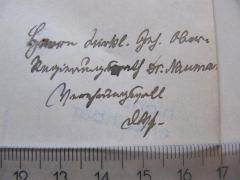 Herrn Wirkl. Geh. Ober-
Regierungsrath Dr. Neumann
Verehrungsvoll
12 13 14 15 16 17